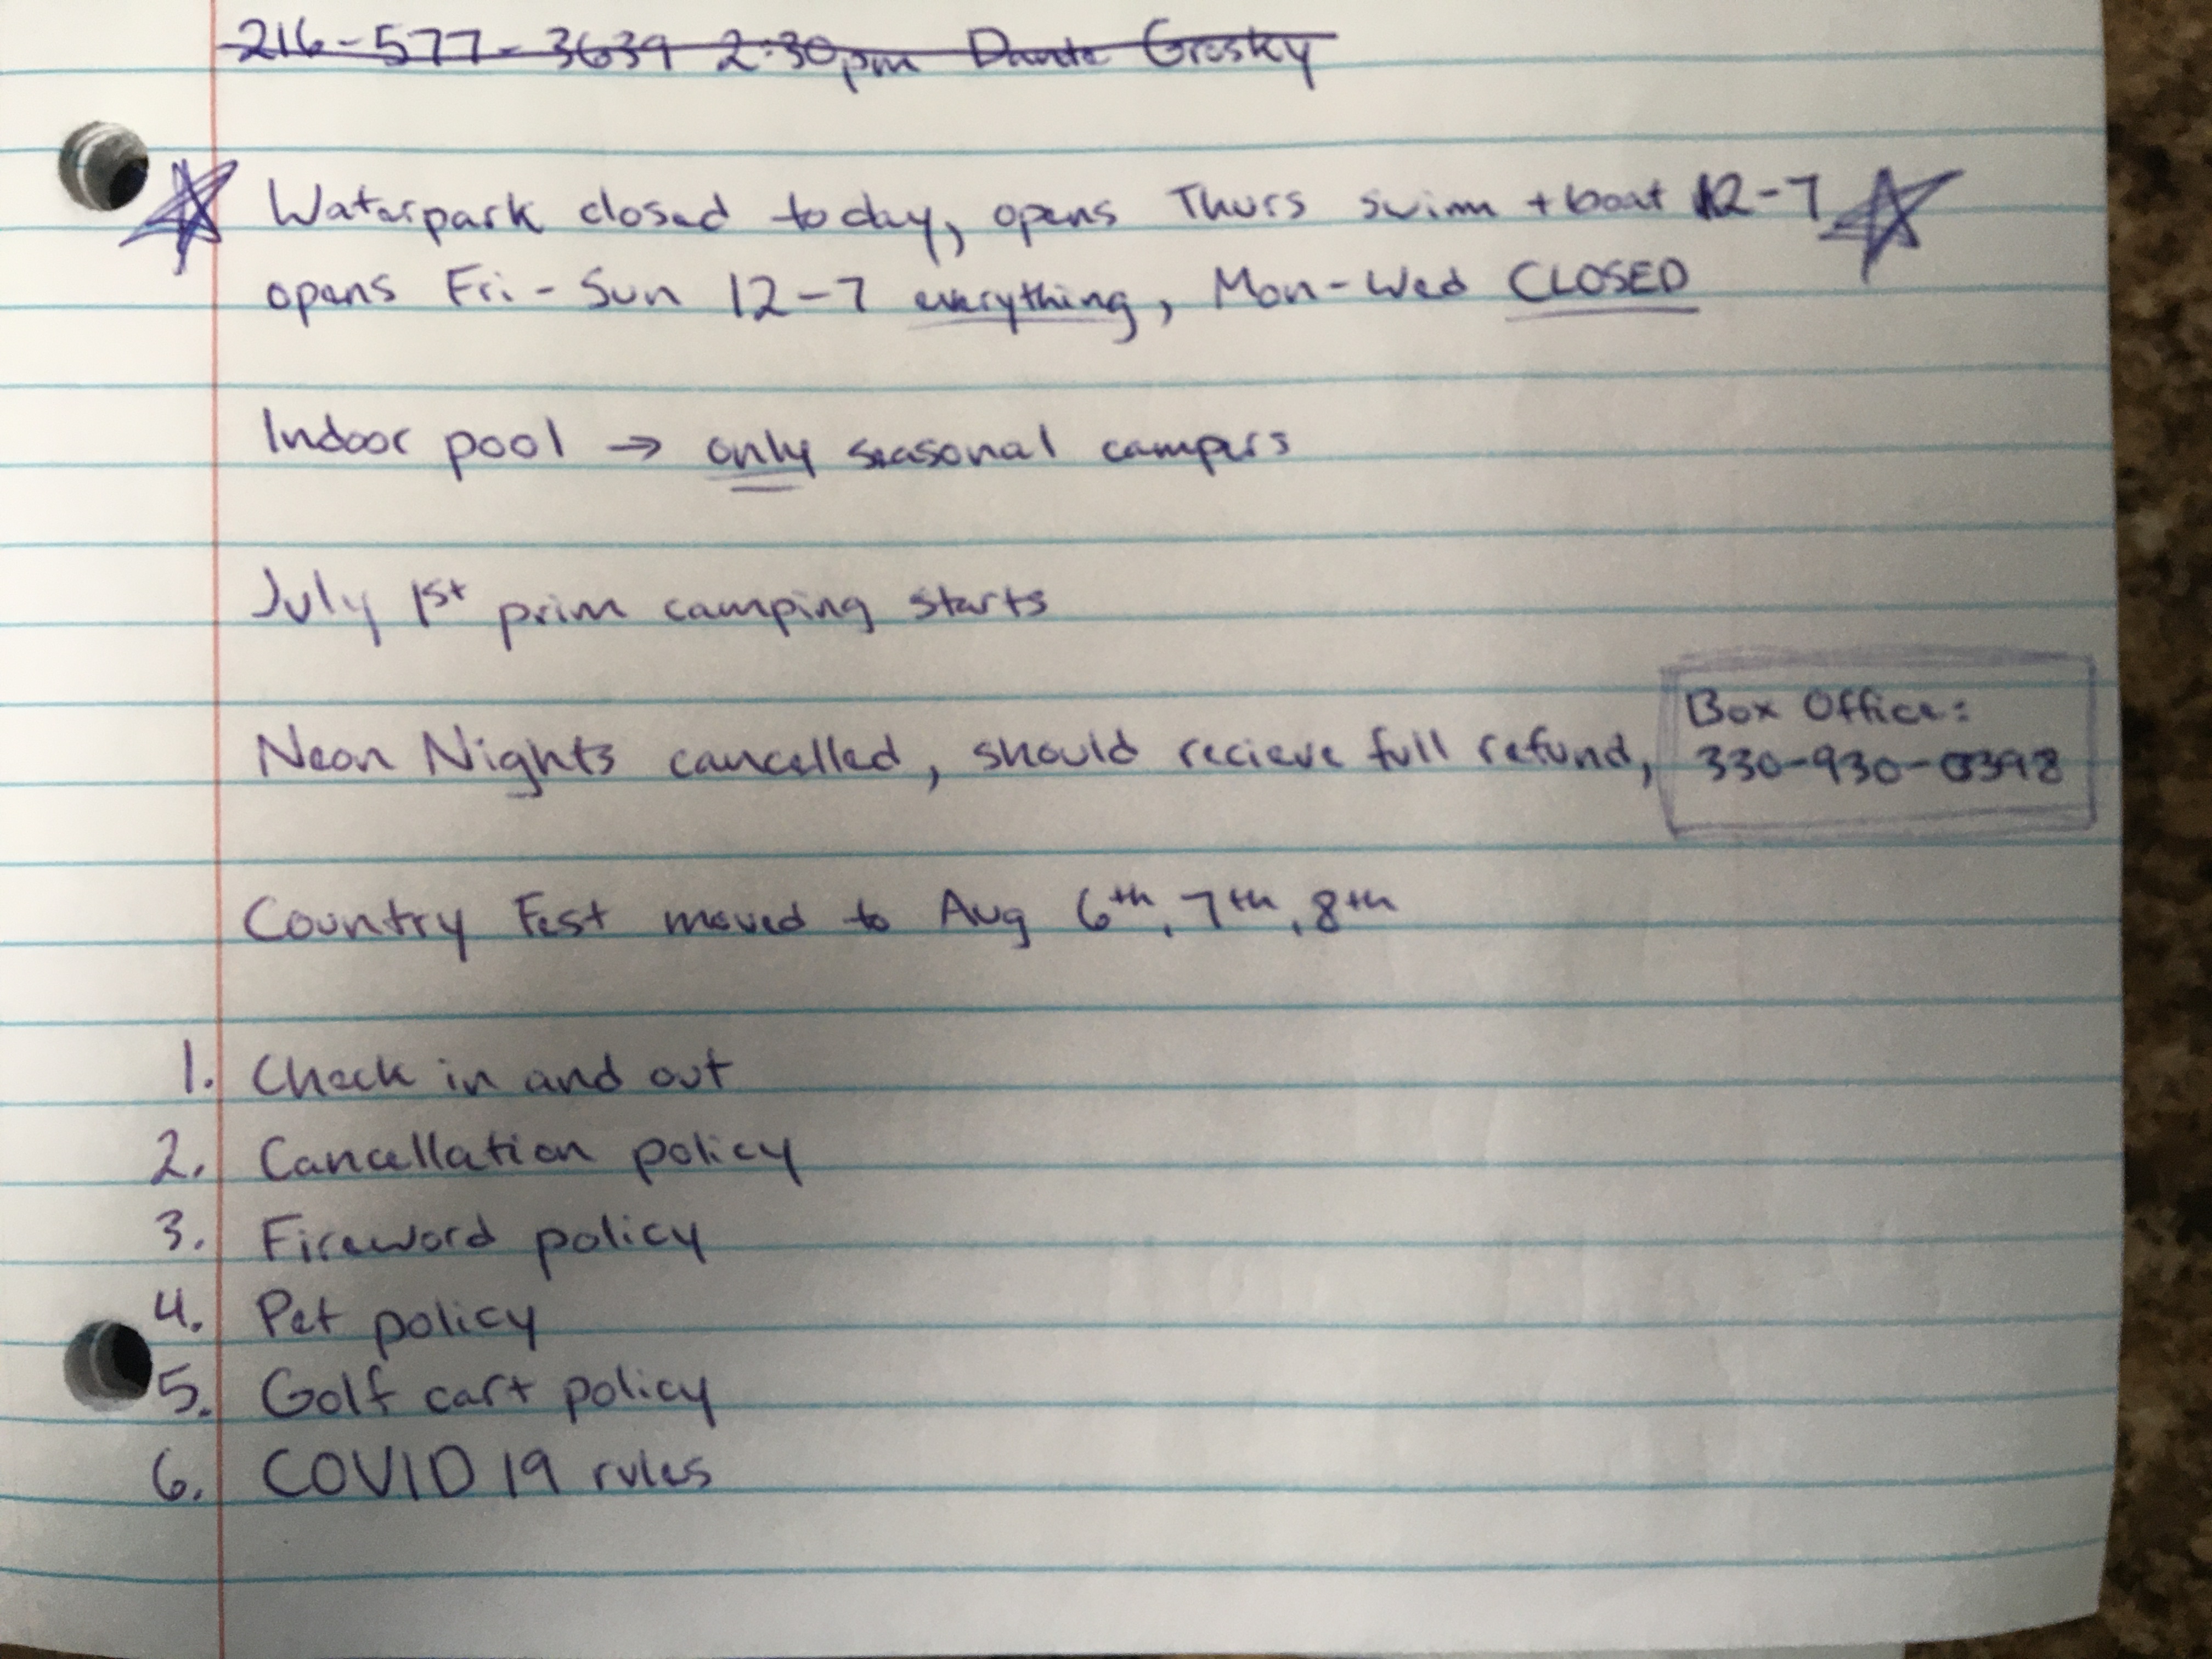 216-577-3639 2:30pm Dante Grosky
Waterpark closed today, opens Thurs swim + boat 12-7
opens Fri-Sun 12-7 everything, Mon-Wed CLOSED
Indoor pool → only seasonal campers
July 1st prim camping starts
Neon Nights cancelled, should recieve full refund,
Box Office:
330-930-0398
Country Fest moved to Aug 6th, 7th, 8th
1. Check in and out
2. Cancellation policy
3. Fireword policy
4. Pet policy
5. Golf cart policy
6. COVID 19 rules